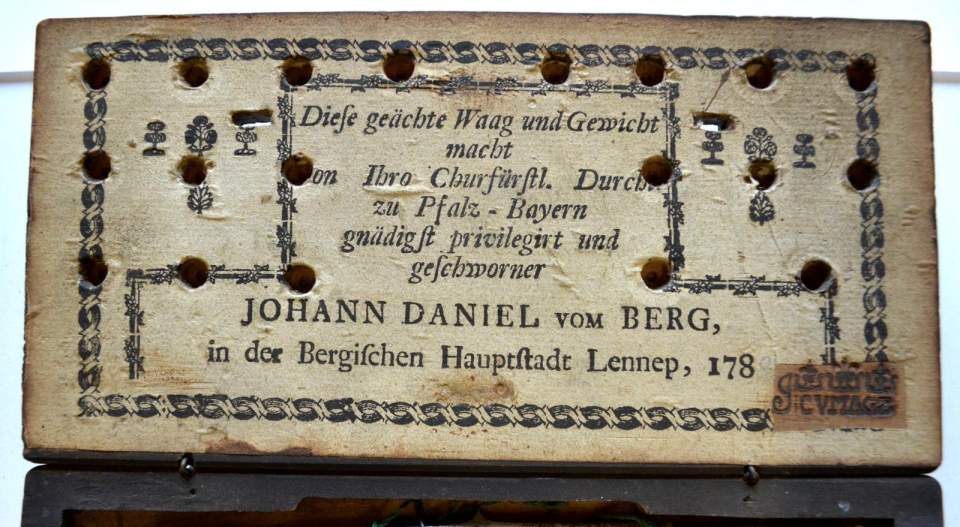 Dieſe geächte Waag und Gewicht
macht
on Ihro Churfürſtl. Durchl.
zu Pfalz - Bayern
gnädigſt privilegirt und
geſchworner
JOHANN DANIEL VOM BERG,
in der Bergiſchen Hauptſtadt Lennep, 178